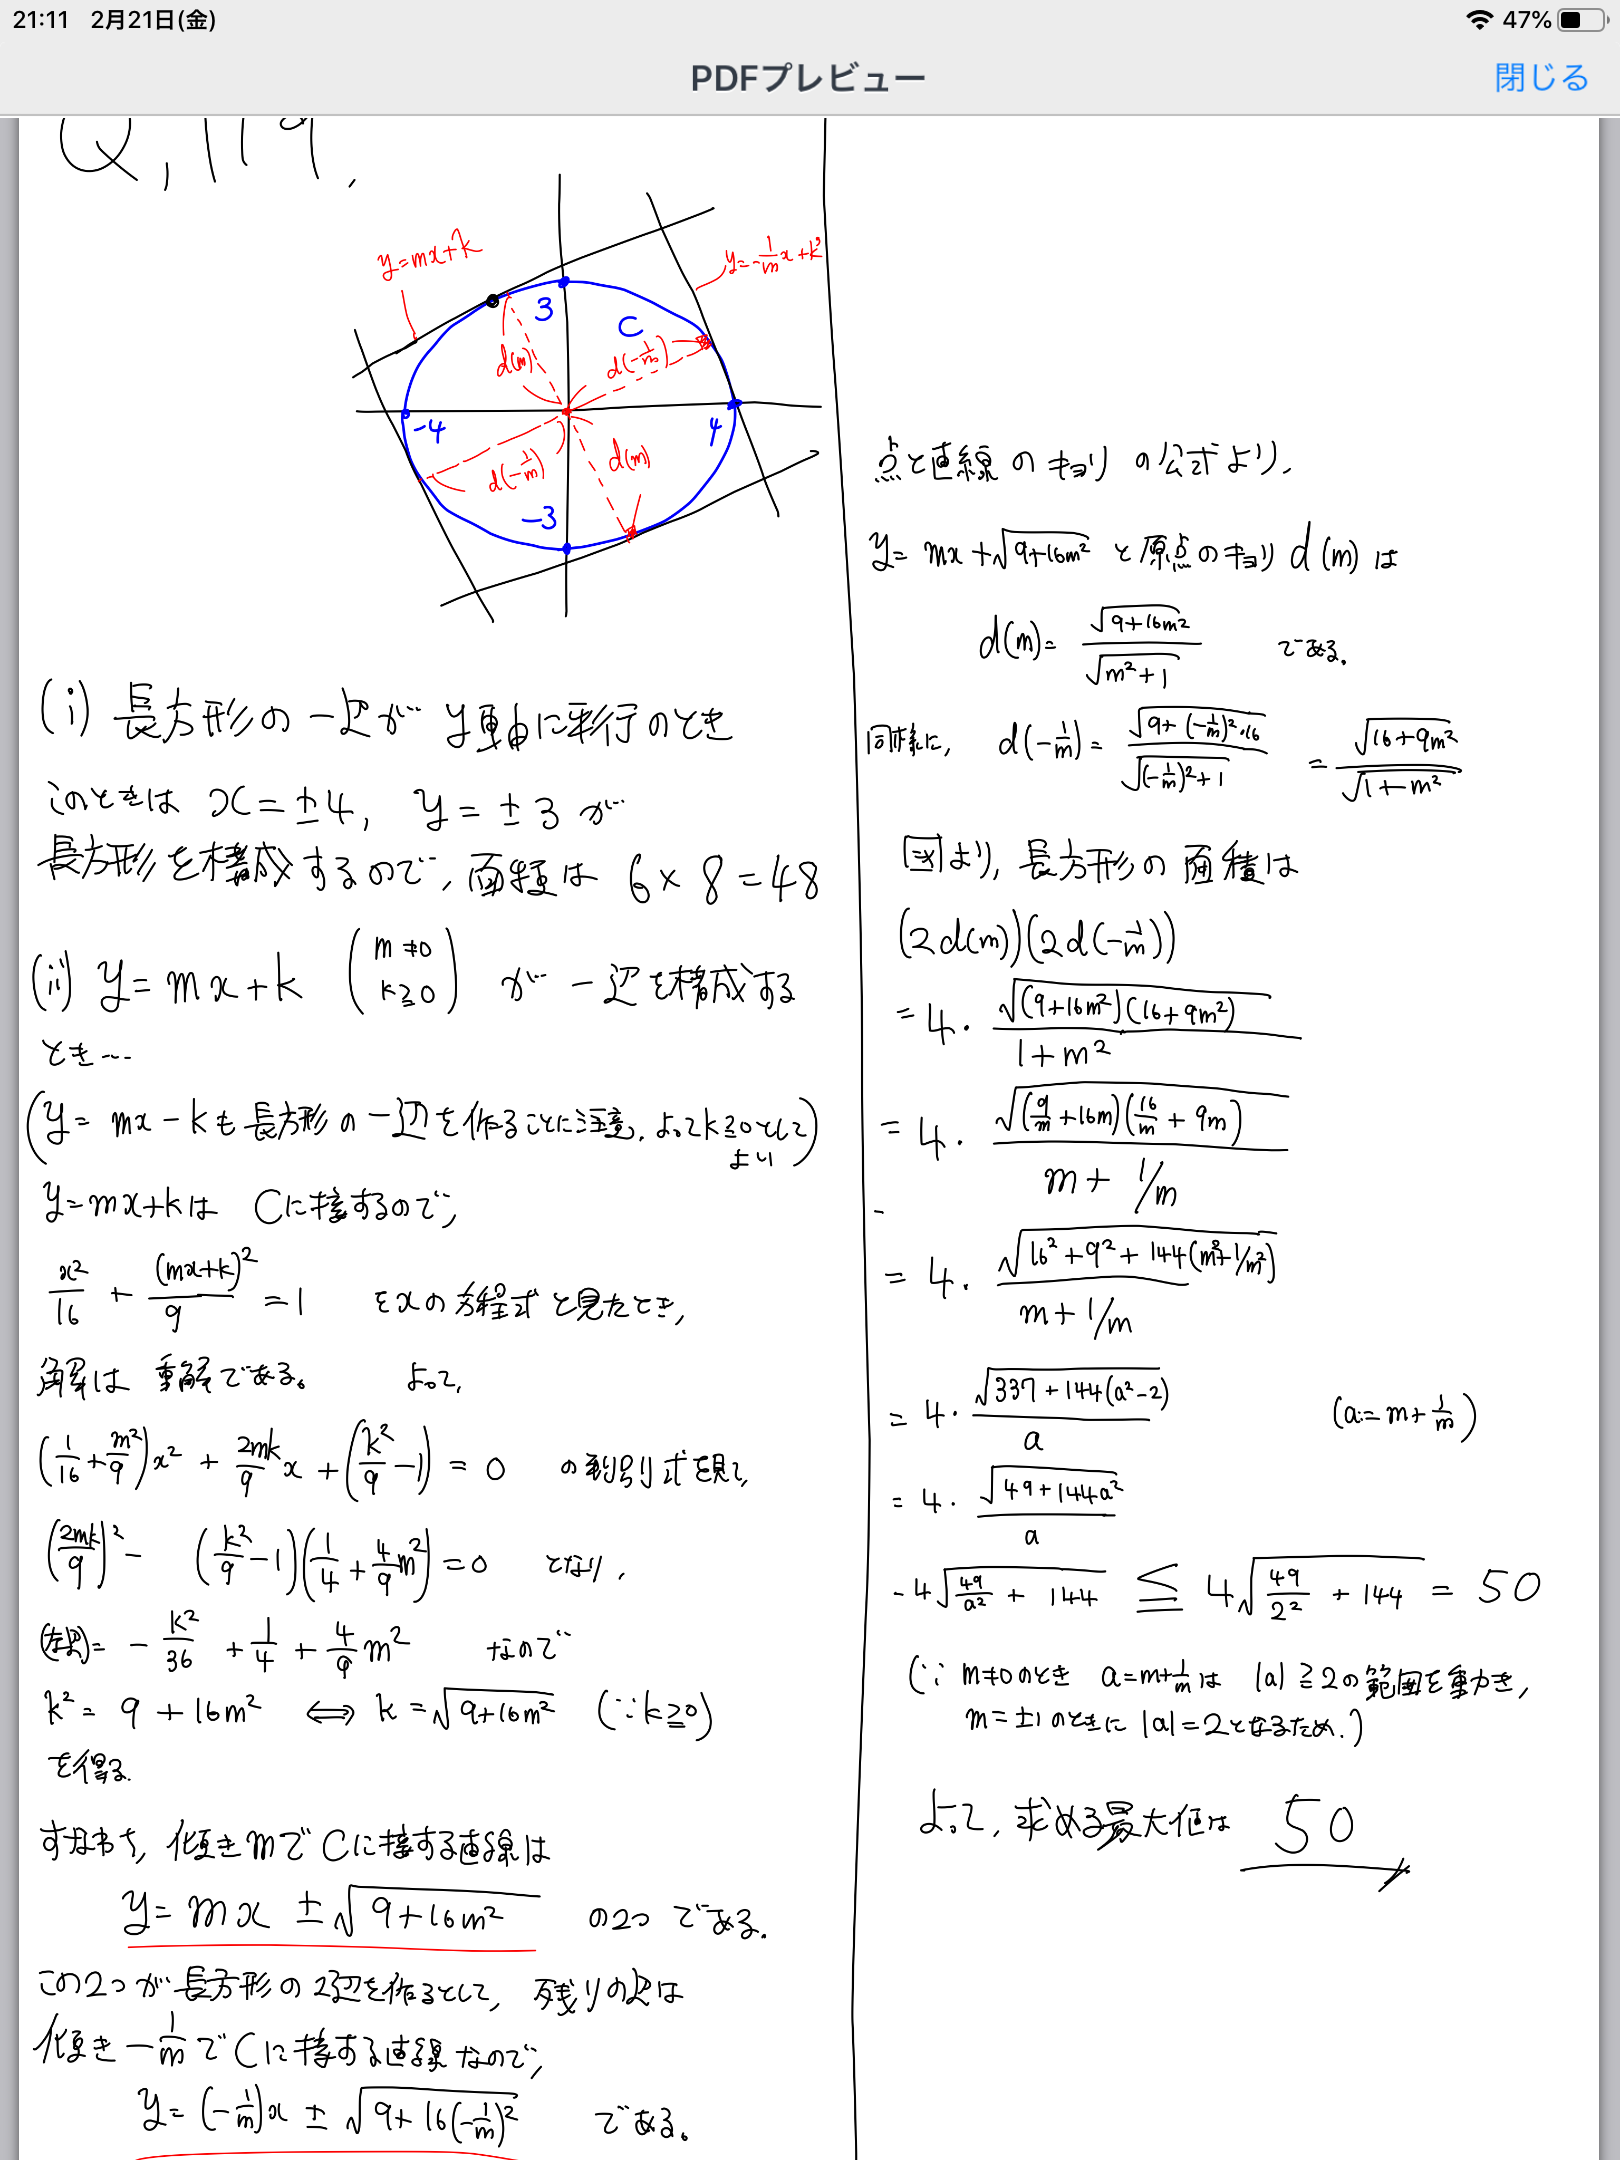 21:11 2月21日(金)
47%
PDFプレビュー
閉じる
Q,119.
y=mx+k
y=-1/m x+k'
3
C
d(m)
d(-1/m)
-4
4
d(-1/m)
d(m)
-3
(i) 長方形の一辺が y軸に平行のとき
このときは x=±4, y=±3が
長方形を構成するので、面積は 6×8=48
(ii) y=mx+k (m≠0 k≧0) が一辺を構成する
とき…
(y=mx-kも長方形の一辺を作ることに注意. よってk≧0として
よい)
y=mx+kは Cに接するので、
x²/16 + (mx+k)²/9 =1 をxの方程式と見たとき,
解は重解である。 よって,
(1/16+m²/9)x² + 2mk/9 x +(k²/9-1) = 0 の判別式を見て,
(2mk/9)² - (k²/9-1)(1/4+4/9m²)=0 となり,
(左辺)= -k²/36 +1/4 + 4/9 m² なので
k²= 9+16m² ⇔ k=√(9+16m²) (∵k≧0)
を得る.
すなわち, 傾きmでCに接する直線は
y=mx ±√(9+16m²) の2つである.
この2つが長方形の2辺を作るとして, 残りの辺は
傾き-1/mでCに接する直線なので,
y=(-1/m)x ± √(9+16(-1/m)²) である。
点と直線のキョリの公式より,
y=mx+√(9+16m²) と原点のキョリ d(m) は
d(m)= √(9+16m²)/√(m²+1) である.
同様に, d(-1/m)= √(9+(-1/m)²・16)/√((-1/m)²+1) = √(16+9m²)/√(1+m²)
図より, 長方形の面積は
(2d(m))(2d(-1/m))
=4・√((9+16m²)(16+9m²))/(1+m²)
=4・√((9/m+16m)(16/m+9m))/(m+1/m)
=4・√(16²+9²+144(m²+1/m²))/(m+1/m)
=4・√(337+144(a²-2))/a (a:=m+1/m)
=4・√(49+144a²)/a
-4√(49/a²+144) ≦ 4√(49/2²+144) = 50
(∵ m≠0のとき a=m+1/mは |a|≧2の範囲を動き,
m=±1のときに |a|=2となるため.)
よって, 求める最大値は 50